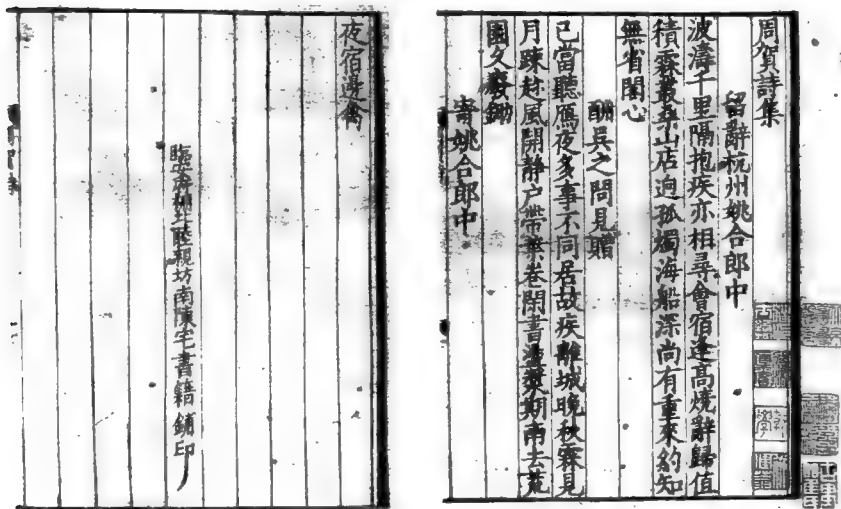 周賀詩集
留辭杭州姚合郎中
波濤千里隔抱疾亦相尋會宿逢高燒辭歸值
積霖叢桑山店迥孤燭海船深尚有重來約知
無省閣心
酬吳之問見贈
已當聽鴈夜多事不同居故疾離城晚秋霖見
月疎趁風開靜户帶葉卷閑書蕩槳期南去荒
園久廢鋤
寄姚合郎中
夜宿邊禽
臨安府棚北睦親坊南陳宅書籍鋪印